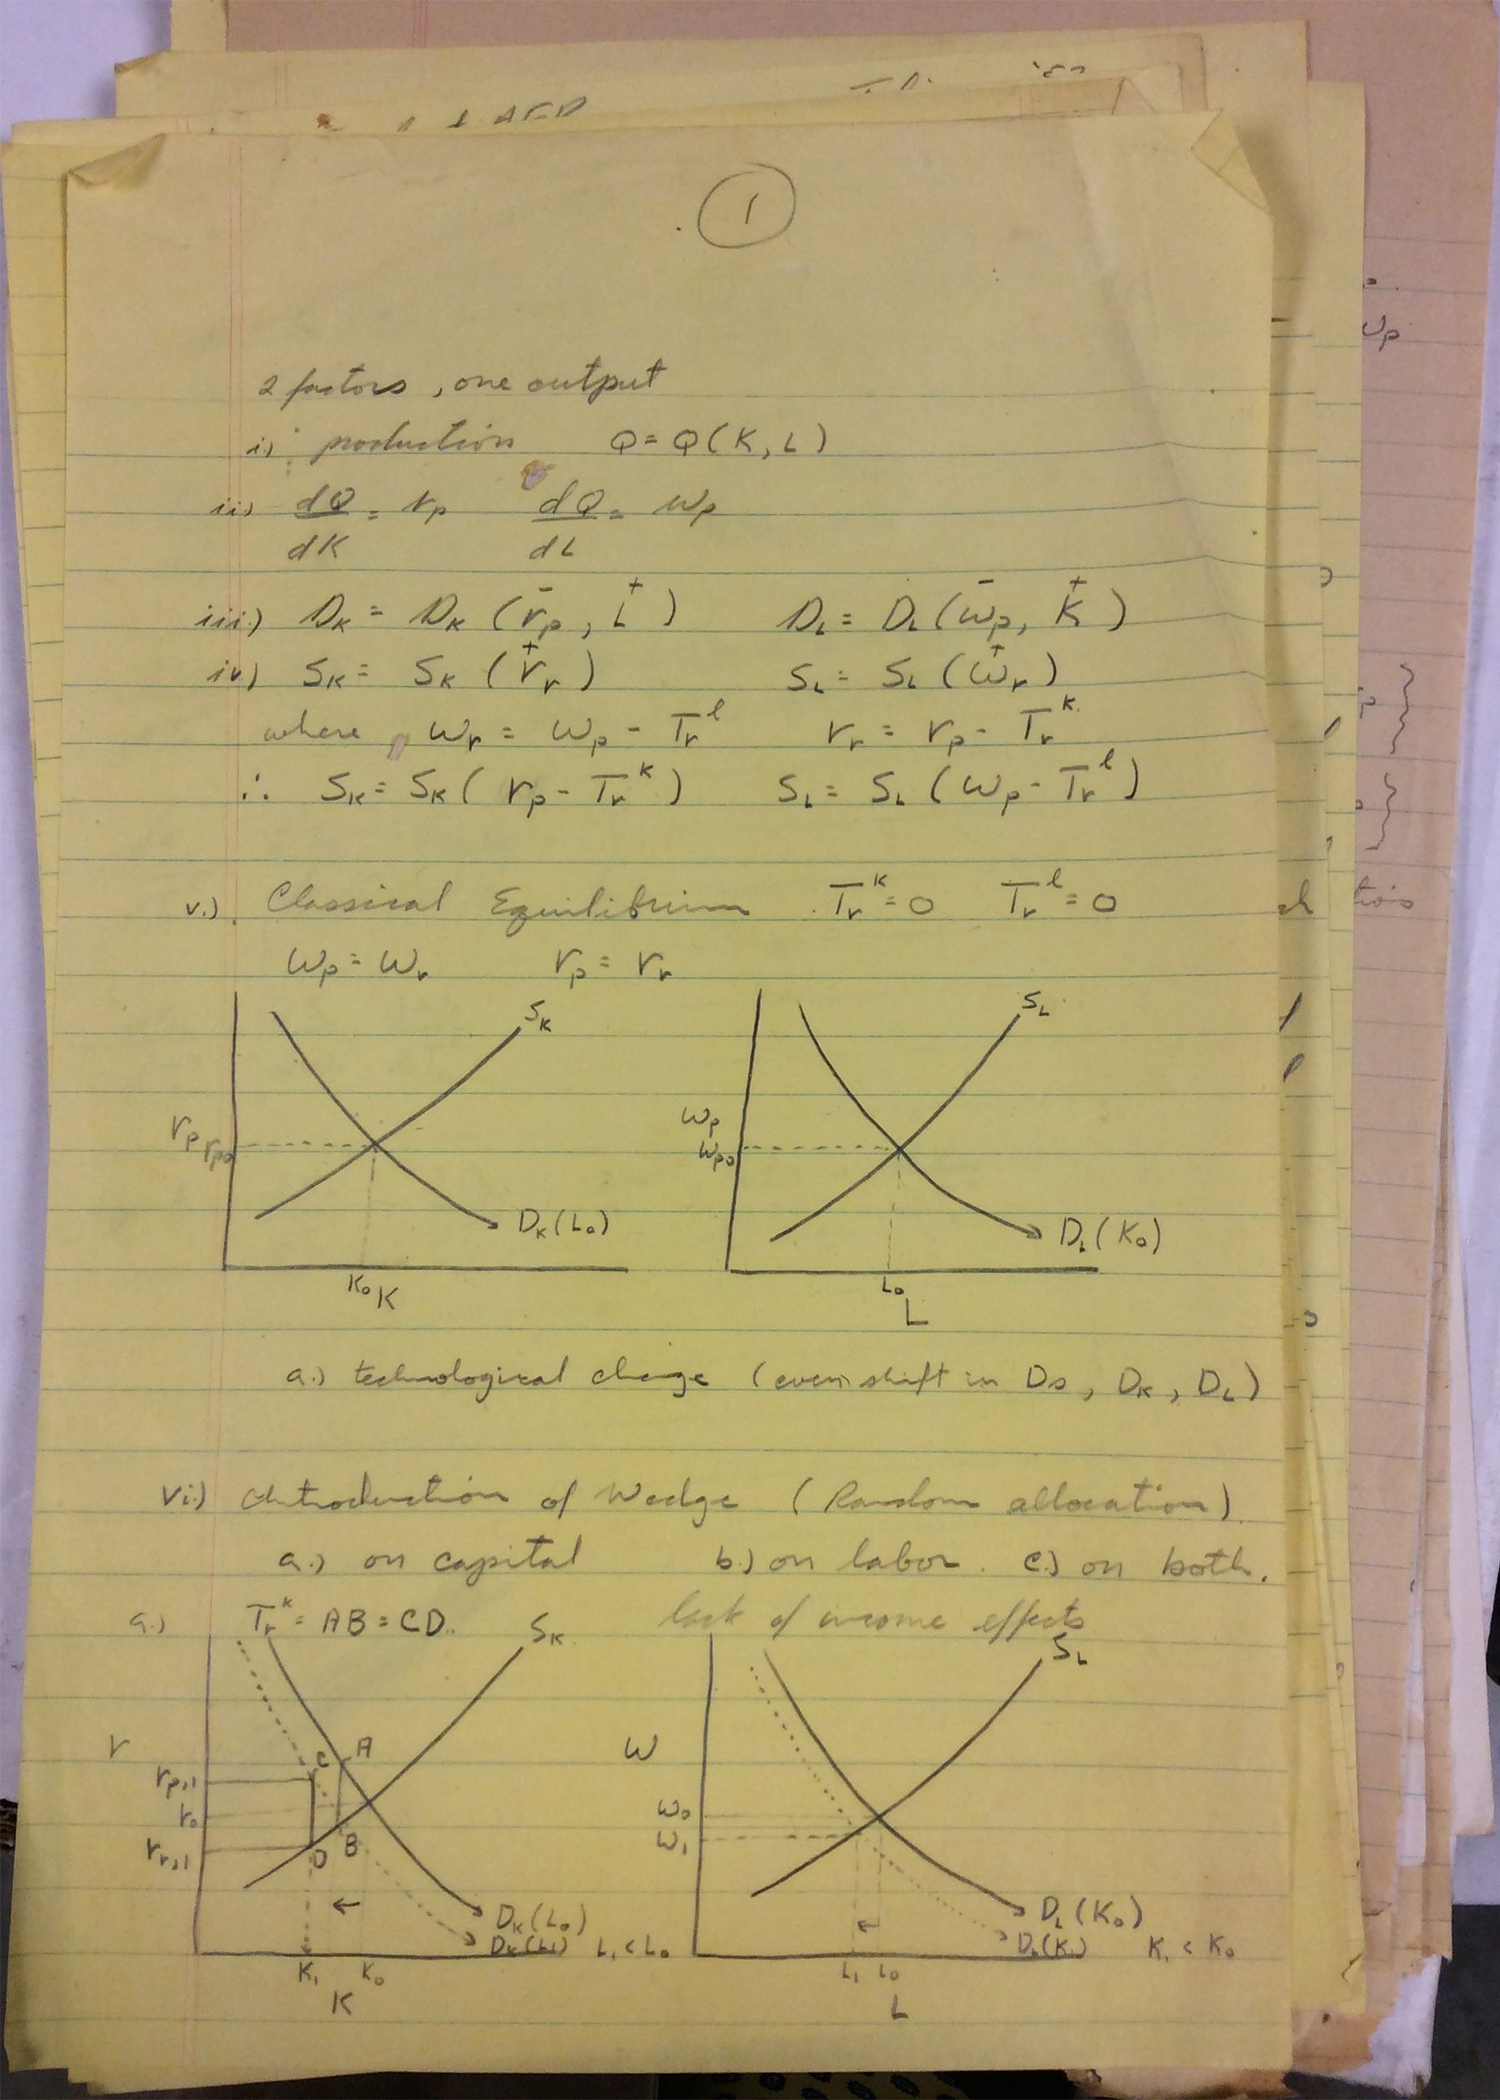 1
2 factors, one output
i.) production Q = Q(K, L)
ii) dQ/dK = rp dQ/dL = wp
iii.) DK = DK (r̄p, L⁺) DL = DL (w̄p, K⁺)
iv) SK = SK (r⁺r) SL = SL (w⁺r)
where wr = wp - Tr^l rr = rp - Tr^k
∴ SK = SK (rp - Tr^k) SL = SL (wp - Tr^l)
v.) Classical Equilibrium Tr^k = 0 Tr^l = 0
wp = wr rp = rr
SK SL
rp rp0 wp wp0
DK(L0) DL(K0)
K0 K L0 L
a.) technological change (even shift in Ds, DK, DL)
vi.) Introduction of Wedge (Random allocation)
a.) on capital b.) on labor. c.) on both.
a.) Tr^k = AB = CD. lack of income effects
SK SL
r C A w
rp,1
r0 w0
rr,1 D B w1
←
DK(L0) DL(K0)
DK(L1) L1 < L0 DL(K1) K1 < K0
K1 K0 L1 L0
K L